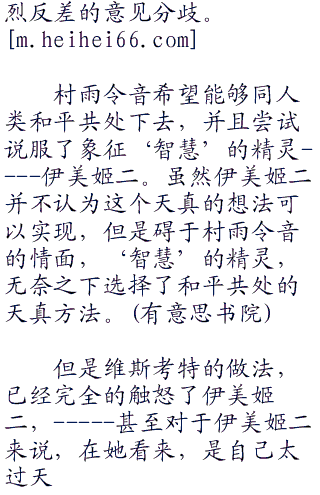 烈反差的意见分歧。
[m.heihei66.com]
村雨令音希望能够同人
类和平共处下去，并且尝试
说服了象征‘智慧’的精灵-
----伊美姬二。虽然伊美姬二
并不认为这个天真的想法可
以实现，但是碍于村雨令音
的情面，‘智慧’的精灵，
无奈之下选择了和平共处的
天真方法。(有意思书院)
但是维斯考特的做法，
已经完全的触怒了伊美姬
二，-----甚至对于伊美姬二
来说，在她看来，是自己太
过天